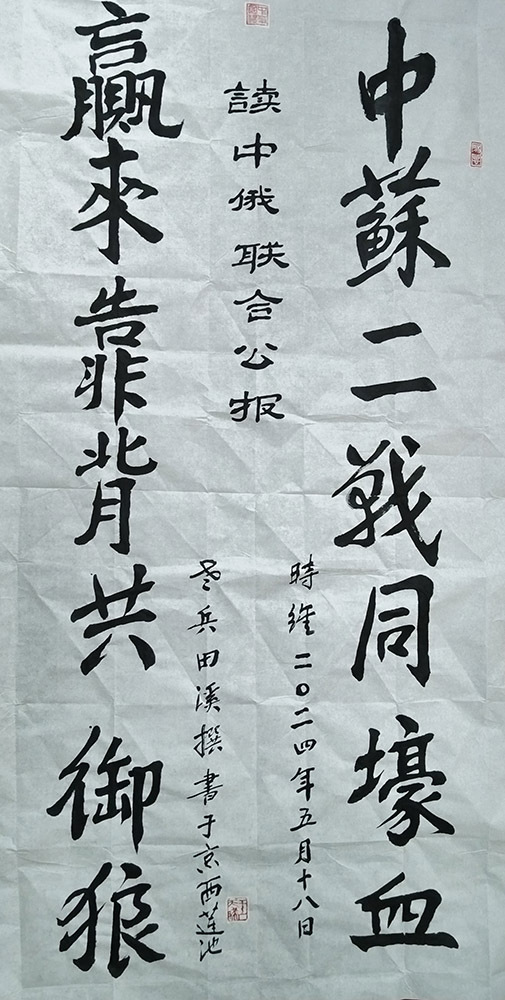 中蘇二戰同壕血
時維二〇二四年五月十八日
读中俄联合公报
老兵田溪撰書于京西蓮池
贏來靠背共御狼